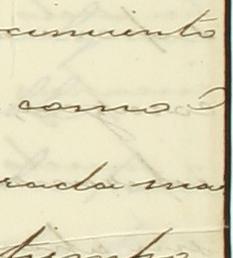 cimiento
como
rada ma
tiempo